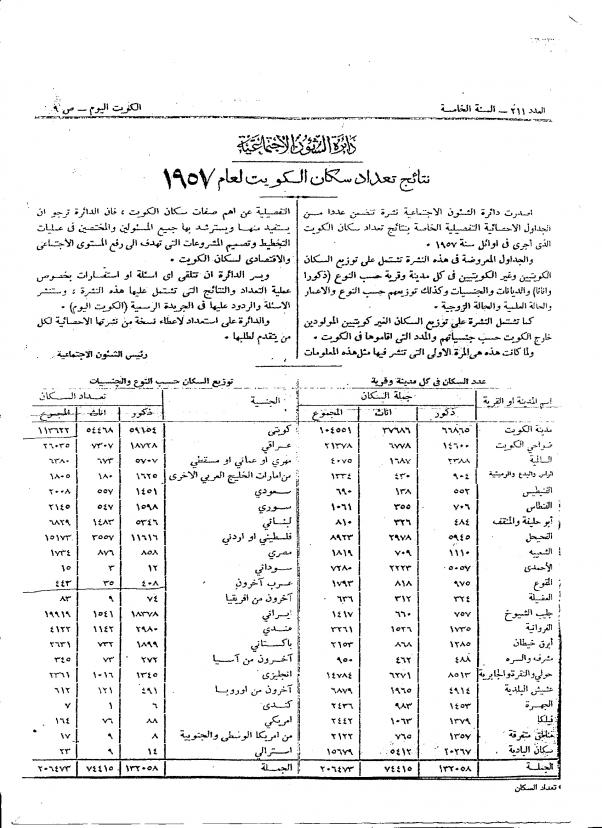 العدد ٢١١ – السنة الخامسة
الكويت اليوم – ص ٩
دائرة الشئون الاجتماعية
نتائج تعداد سكان الكويت لعام ١٩٥٧
اصدرت دائرة الشئون الاجتماعية نشرة تتضمن عددا من
الجداول الاحصائية التفصيلية الخاصة بنتائج تعداد سكان الكويت
الذى أجرى فى اوائل سنة ١٩٥٧ .
والجداول المعروضة فى هذه النشرة تشتمل على توزيع السكان
الكويتيين وغير الكويتيين فى كل مدينة وقرية حسب النوع (ذكورا
واناثا) والديانات والجنسيات وكذلك توزيعهم حسب النوع والاعمار
والحالة العلمية والحالة الزوجية .
كما تشتمل النشرة على توزيع السكان الغير كويتيين المولودين
خارج الكويت حسب جنسياتهم والمدد التى اقاموها فى الكويت .
ولما كانت هذه هى المرة الاولى التى تنشر فيها مثل هذه المعلومات
التفصيلية عن اهم صفات سكان الكويت ، فان الدائرة ترجو ان
يستفيد منها ويسترشد بها جميع المسئولين والمختصين فى عمليات
التخطيط وتصميم المشروعات التى تهدف الى رفع المستوى الاجتماعى
والاقتصادى لسكان الكويت .
ويسر الدائرة ان تتلقى اى اسئلة او استفسارات بخصوص
عملية التعداد والنتائج التى تشتمل عليها هذه النشرة ، وستنشر
الاسئلة والردود عليها فى الجريدة الرسمية (الكويت اليوم) .
والدائرة على استعداد لاعطاء نسخة من نشرتها الاحصائية لكل
من يتقدم لطلبها .
رئيس الشئون الاجتماعية
عدد السكان فى كل مدينة وقرية
اسم المدينة او القرية جملة السكان
ذكور اناث المجموع
مدينة الكويت ٦٦٨٦٥ ٣٧٦٨٦ ١٠٤٥٥١
ضواحي الكويت ١٤٦٠٠ ٦٧٧٨ ٢١٣٧٨
السالمية ٢٣٨٨ ١٦٨٧ ٤٠٧٥
الراس والبدع والرميثية ٩٠٤ ٤٣٠ ١٣٣٤
الفنيطيس ٥٥٢ ١٣٨ ٦٩٠
الفنطاس ٧٠٦ ٣٥٥ ١٠٦١
أبو حليفة والمنقف ٤٨٤ ٣٢٦ ٨١٠
الفحيحل ٥٩٤٥ ٢٩٧٨ ٨٩٢٣
الشعيبه ١١١٠ ٧٠٩ ١٨١٩
الأحمدى ٥٠٥٧ ٢٢٢٣ ٧٢٨٠
المقوع ٩٧٥ ٨١٨ ١٧٩٣
العضيلة ٣٢٤ ٣١٢ ٦٣٦
جليب الشيوخ ٧٥٧ ٦٦٠ ١٤١٧
الفروانية ١٧٣٥ ١٥٢٦ ٣٢٦١
أبرق خيطان ١٢٨٥ ٨٦٨ ٢١٥٣
مشرف والسره ٤٨٨ ٤٦٢ ٩٥٠
حولي والنقرة والجابرية ٨٥١٣ ٦٢٧١ ١٤٧٨٤
عشيش البلدية ٤٩١٤ ١٩٦٥ ٦٨٧٩
الجهرة ١٤٥٣ ٩٨٣ ٢٤٣٦
فيلكا ١٣٧٩ ١٠٦٣ ٢٤٤٢
مناطق متفرقة ١٣٥٧ ٧٦٥ ٢١٢٢
سكان البادية ٢٠٢٦٧ ٥٤١٢ ١٥٦٧٩
الجملة ١٣٢٠٥٨ ٧٤٤١٥ ٢٠٦٤٧٣
توزيع السكان حسب النوع والجنسيات
الجنسية تعداد السكان
ذكور اناث المجموع
كويتى ٥٩١٥٤ ٥٤٤٦٨ ١١٣٦٢٢
عراقي ١٨٧٢٨ ٧٣٠٧ ٢٦٠٣٥
مهري او عماني او مسقطي ٥٧٠٧ ٦٧٣ ٦٣٨٠
من امارات الخليج العربي الاخرى ١٦٢٥ ١٨٠ ١٨٠٥
سعودي ١٤٥١ ٥٥٧ ٢٠٠٨
سوري ١٥٩٨ ٥٤٧ ٢١٤٥
لبناني ٥٣٤٦ ١٤٨٣ ٦٨٢٩
فلسطيني او اردني ١١٦١٦ ٣٥٥٧ ١٥١٧٣
مصري ٨٥٨ ٨٧٦ ١٧٣٤
سوداني ١٢ ٣ ١٥
عرب آخرون ٤٠٨ ٣٥ ٤٤٣
آخرون من افريقيا ٧٤ ٩ ٨٣
ايراني ١٨٣٧٨ ١٥٤١ ١٩٩١٩
هندي ٢٩٨٠ ١١٤٢ ٤١٢٢
باكستاني ١٨٩٩ ٧٣٢ ٢٦٣١
آخرون من آسيا ٢٧٢ ٧٣ ٣٤٥
انجليزي ١٣٤٥ ١٠١٦ ٢٣٦١
آخرون من اوروبا ٤٩١ ١٢١ ٦١٢
كندى ٦ ١ ٧
امريكي ٨٨ ٧٦ ١٦٤
من امريكا الوسطى والجنوبية ٨ ٩ ١٧
استرالي ١٤ ٩ ٢٣
الجملة ١٣٢٠٥٨ ٧٤٤١٥ ٢٠٦٤٧٣
تعداد السكان